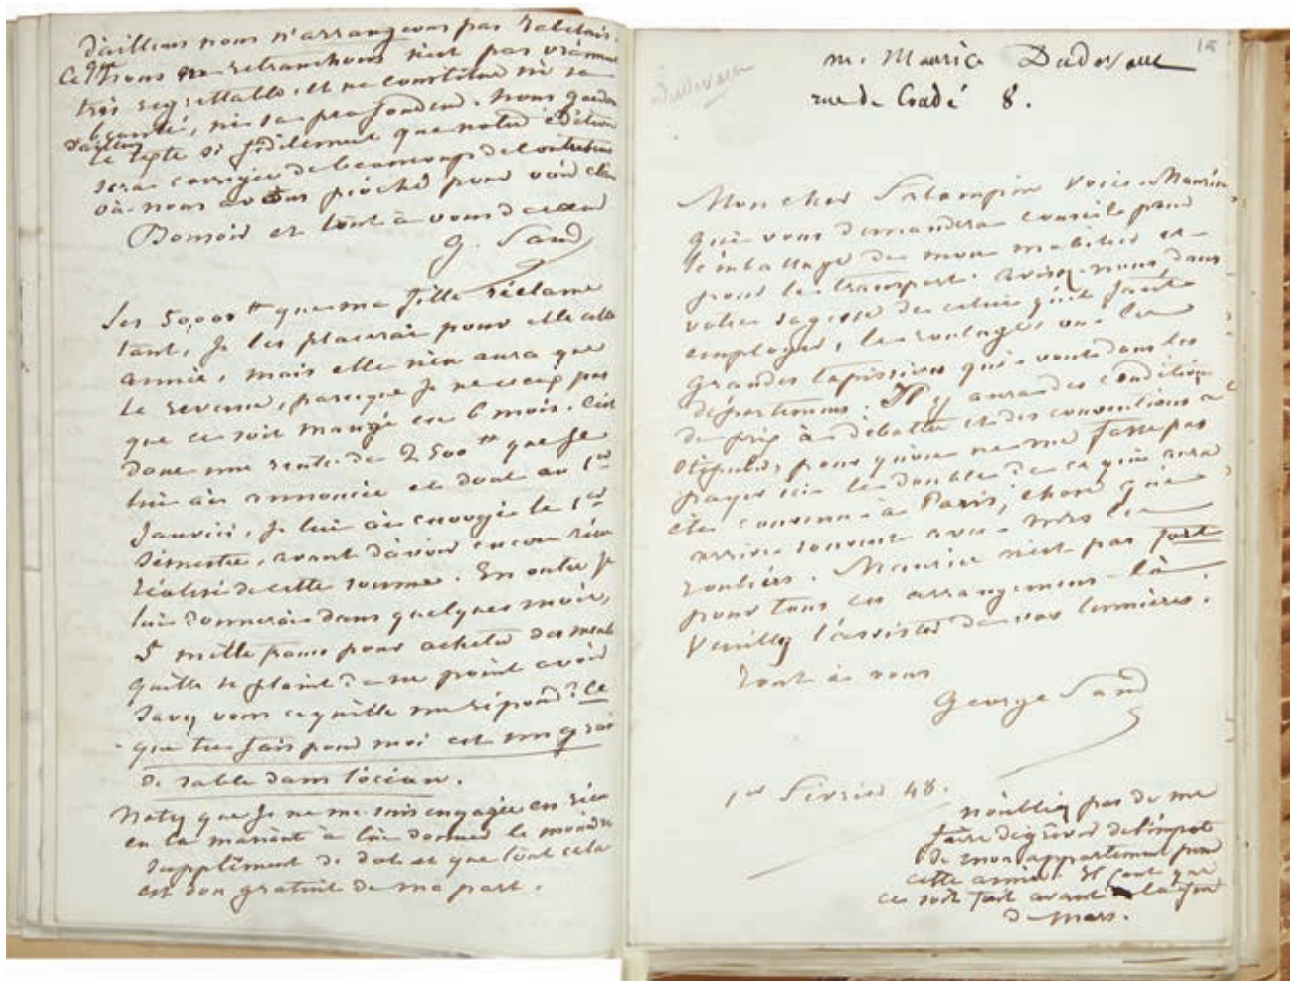 d'ailleurs nous n'arrangeons pas Rabelais.
Ce que nous ne retranchons n'est pas vraiment
très regrettable, et ne constitue ni sa
beauté, ni sa profondeur. Nous gardons
d'ailleurs le texte si fidèlement que notre édition
sera corrigée de beaucoup de
où nous avons pioché pour voir clair
Bonsoir et tout à vous de cœur
G. Sand
Les 50,000 ff que ma fille réclame
tant, je les placerai pour elle cette
année, mais elle n'en aura que
le revenu, parceque je ne veux pas
que ce soit mangé en 6 mois. C'est
donc une rente de 2500 ff que je
lui ai annoncée et dont au 1er
Janvier, je lui ai envoyé le 1er
semestre, avant d'avoir encore rien
réalisé de cette somme. En outre je
lui donnerai dans quelques mois,
5 mille francs pour acheter des meubles
qu'elle se plaint de ne point avoir
savez vous ce qu'elle me répond? Ce
que tu fais pour moi est un grain
de sable dans l'océan.
Notez que je ne me suis engagée en rien
en la mariant à lui donner le moindre
supplément de dot et que tout cela
est don gratuit de ma part.
12
Dudevant
M. Maurice Dudevant
rue de Condé 8.
Mon cher voici Maurice
qui vous demandera conseil pour
l'emballage de mon mobilier et
pour le transport. avisez-nous dans
votre sagesse de celui qu'il faut
employer, le roulage, ou les
grandes tapissières qui vont dans les
départemens. Il y aura des conditions
de prix à débattre et des conventions à
stipuler, pour qu'on ne me fasse pas
payer ici le double de ce qui sera
été convenu à Paris, chose qui
arrive souvent avec mrs les
rouliers. Maurice n'est pas fort
pour tous ces arrangemens-là
Veuillez l'assister de vos lumières.
Tout à vous
George Sand
1er février 48.
n'oubliez pas de me
faire dégréver de l'impot
de mon appartement pour
cette année. Il faut que
ce soit fait avant la fin
de mars.